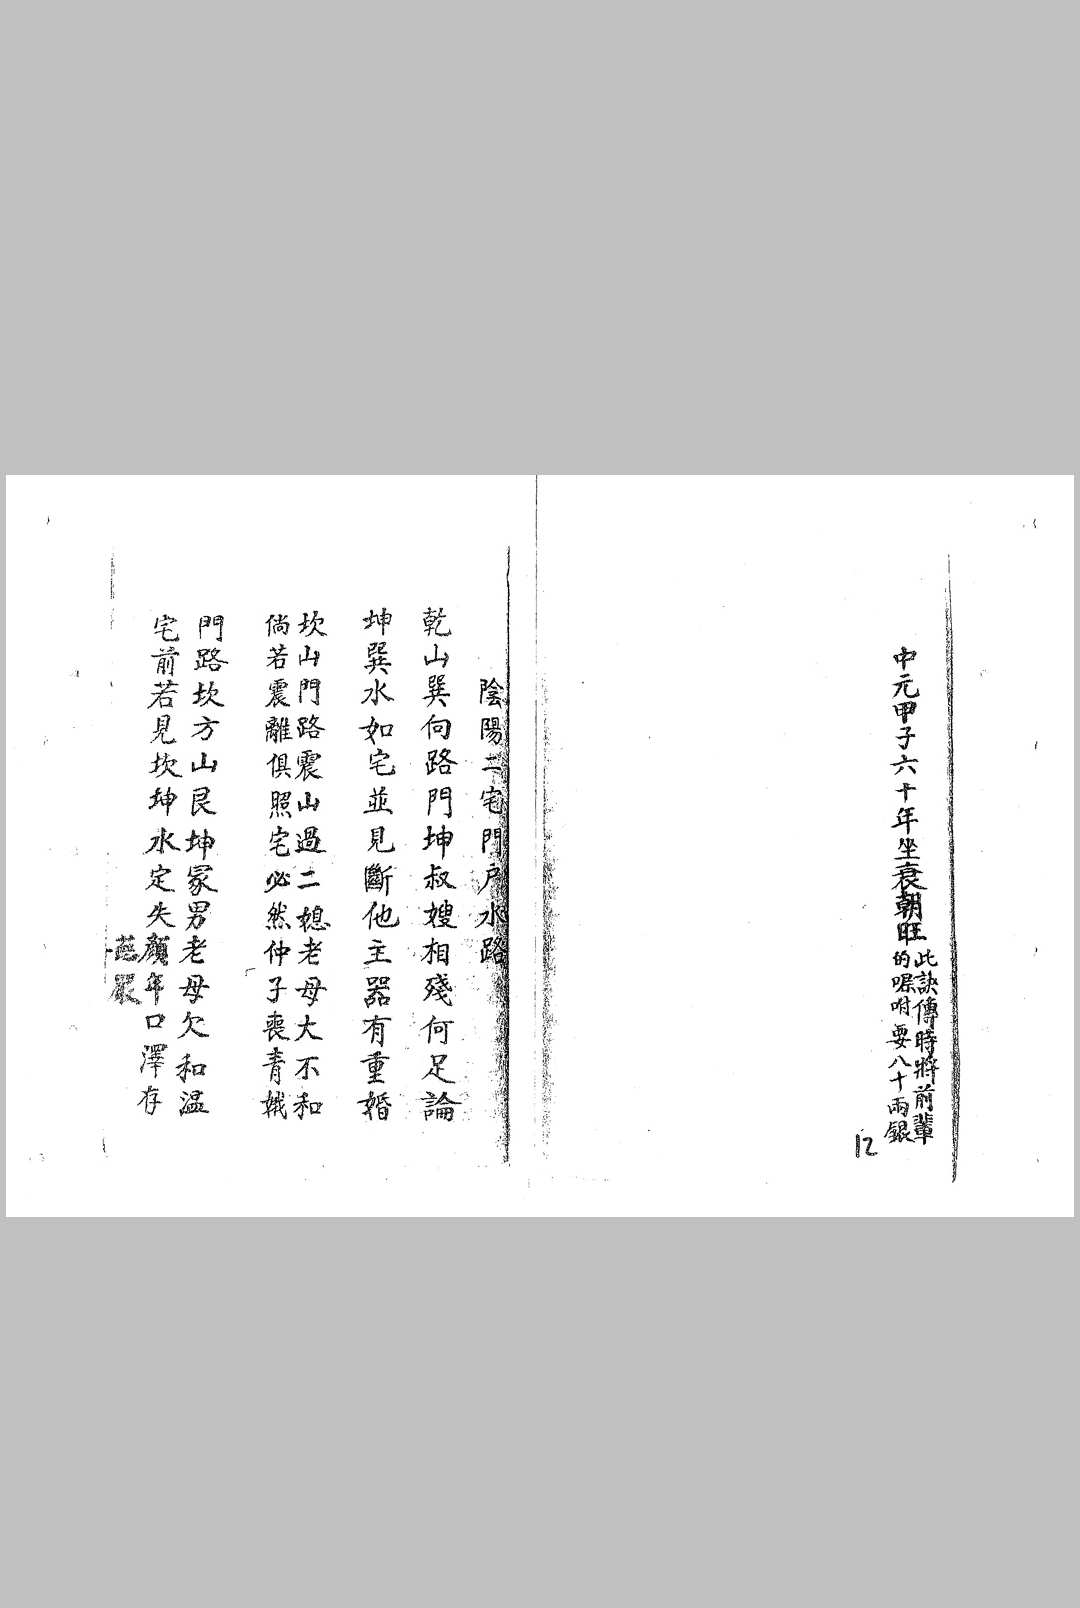 中元甲子六十年坐衰朝旺
此訣傳時將前輩
的囑咐要八十兩銀
12
陰陽二宅門戶水路
乾山巽向路門坤叔嫂相殘何足論
坤巽水如宅並見斷他主器有重婚
坎山門路震山過二媳老母大不和
倘若震離俱照宅必然仲子喪青娥
門路坎方山艮坤冢男老母欠和溫
宅前若見坎坤水定失顏年口澤存